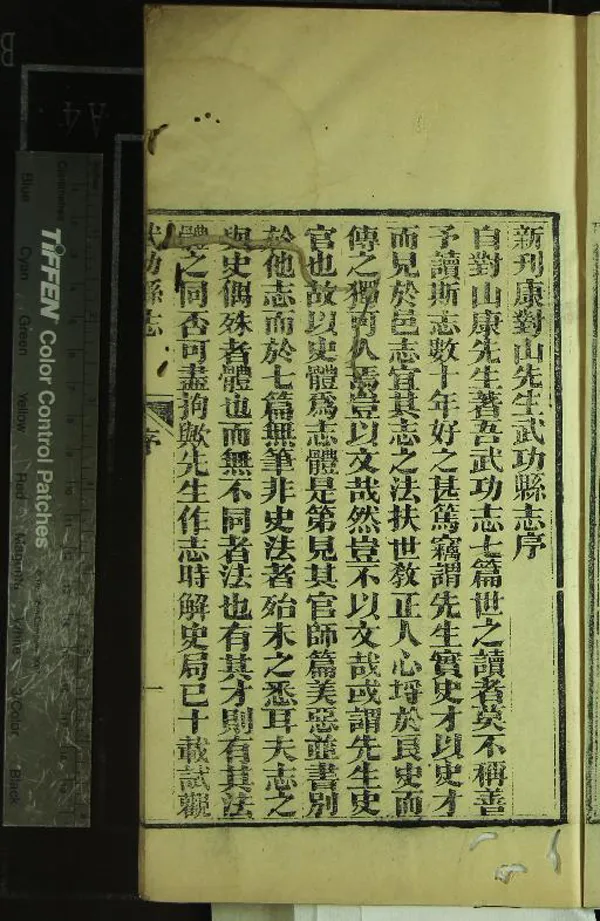 新刋康對山先生武功縣志序
自對山康先生著吾武功志七篇世之讀者莫不稱善
予讀斯志數十年好之甚篤竊謂先生實史才以史才
而見於邑志宜其志之法扶世敎正人心埒於良史而
傳之獨可久焉豈以文哉然豈不以文哉或謂先生史
官也故以史體爲志體是第見其官師篇美惡並書別
於他志而於七篇無筆非史法者殆未之悉耳夫志之
與史偶殊者體也而無不同者法也有其才則有其法
體之同否可盡拘歟先生作志時解史局已十載試觀
武功縣志
序
一
TIFFEN Color Control Patches
Blue
Cyan
Green
Yellow
Red
Magenta
White
3/Color
Black
A4
B